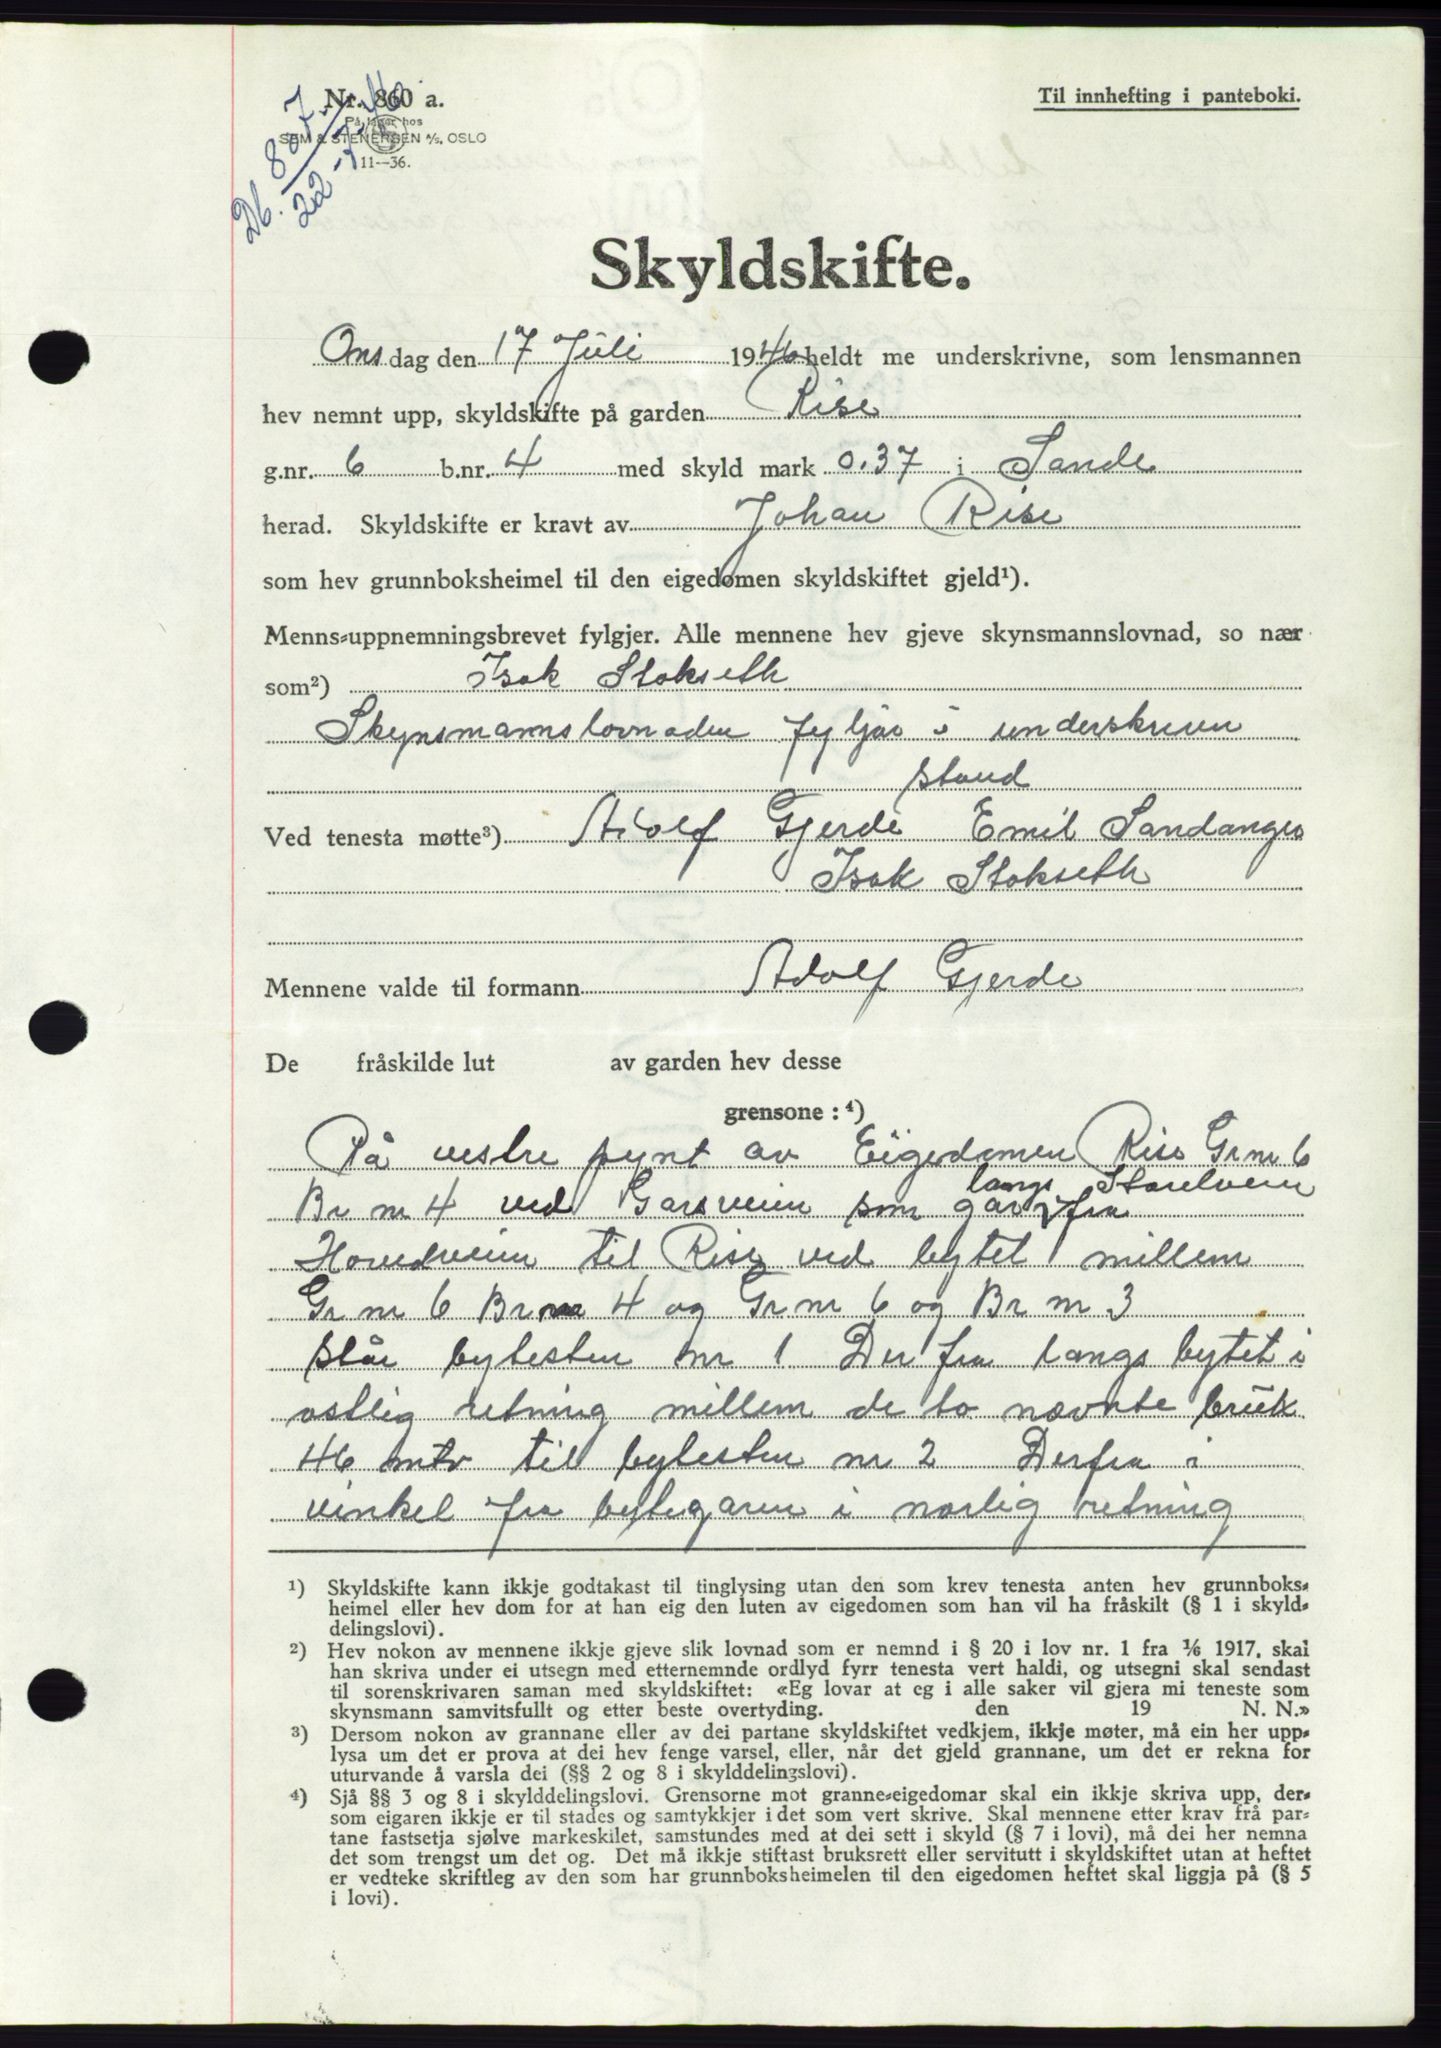 Db. 807
22-7-46
Nr. 860 a.
På lager hos
SEM & STENERSEN A/S, OSLO
11—36.
Til innhefting i panteboki.
Skyldskifte.
Onsdag den 17 Juli 1946 heldt me underskrivne, som lensmannen
hev nemnt upp, skyldskifte på garden Rise
g.nr. 6 b.nr. 4 med skyld mark 0.37 i Sande
herad. Skyldskifte er kravt av Johan Rise
som hev grunnboksheimel til den eigedomen skyldskiftet gjeld¹).
Menns-uppnemningsbrevet fylgjer. Alle mennene hev gjeve skynsmannslovnad, so nær
som²) Isak Stokseth
Skynsmannslovnaden fyljar i underskriven
stand
Ved tenesta møtte³) Adolf Gjerde Emil Sandanger
Isak Stokseth
Mennene valde til formann Adolf Gjerde
De fråskilde lut av garden hev desse
grensone :⁴)
På vestre pynt av Eigerdomen Rise Gr nr 6
Br nr 4 ved Garsveien som går langs Storelveien fra
Hovedveien til Rise ved bytet millem
Gr nr 6 Br nr 4 og Gr nr 6 og Br nr 3
står bytesten nr 1 Der fra langs bytet i
ostlig retning millem de to nævnte bruk
46 mtr til bytesten nr 2 Derfra i
vinkel fra bytegaren i norlig retning
¹) Skyldskifte kann ikkje godtakast til tinglysing utan den som krev tenesta anten hev grunnboks-
heimel eller hev dom for at han eig den luten av eigedomen som han vil ha fråskilt (§ 1 i skyld-
delingslovi).
²) Hev nokon av mennene ikkje gjeve slik lovnad som er nemnd i § 20 i lov nr. 1 fra 1/6 1917, skal
han skriva under ei utsegn med etternemnde ordlyd fyrr tenesta vert haldi, og utsegni skal sendast
til sorenskrivaren saman med skyldskiftet: «Eg lovar at eg i alle saker vil gjera mi teneste som
skynsmann samvitsfullt og etter beste overtyding. den 19 N. N.»
³) Dersom nokon av grannane eller av dei partane skyldskiftet vedkjem, ikkje møter, må ein her upp-
lysa um det er prova at dei hev fenge varsel, eller, når det gjeld grannane, um det er rekna for
uturvande å varsla dei (§§ 2 og 8 i skylddelingslovi).
⁴) Sjå §§ 3 og 8 i skylddelingslovi. Grensorne mot granne-eigedomar skal ein ikkje skriva upp, der-
som eigaren ikkje er til stades og samtykkjer i det som vert skrive. Skal mennene etter krav frå par-
tane fastsetja sjølve markeskilet, samstundes med at dei sett i skyld (§ 7 i lovi), må dei her nemna
det som trengst um det og. Det må ikkje stiftast bruksrett eller servitutt i skyldskiftet utan at heftet
er vedteke skriftleg av den som har grunnboksheimelen til den eigedomen heftet skal liggja på (§ 5
i lovi).